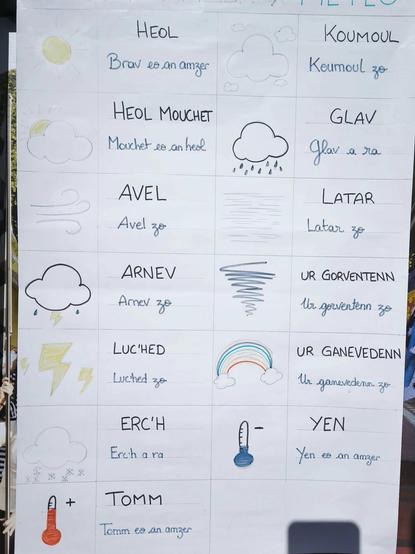 METEO
HEOL
Brav eo an amzer
KOUMOUL
Koumoul zo
HEOL MOUCHET
Mouchet eo an heol
GLAV
Glav a ra
AVEL
Avel zo
LATAR
Latar zo
ARNEV
Arnev zo
UR GORVENTENN
Ur gorventenn zo
LUC'HED
Luc'hed zo
UR GANEVEDENN
Ur ganevedenn zo
ERC'H
Erc'h a ra
-
YEN
Yen eo an amzer
+
TOMM
Tomm eo an amzer